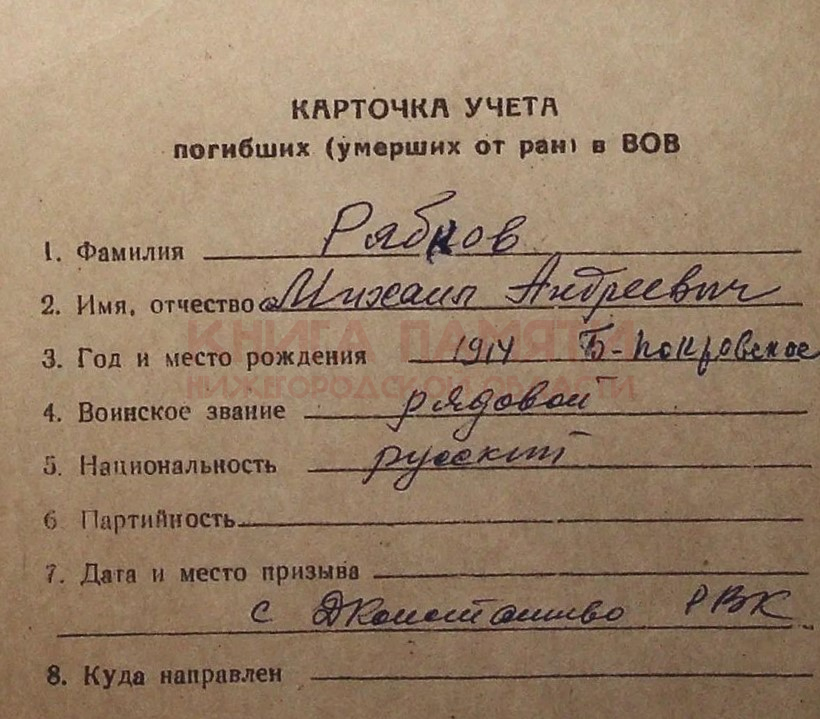 КАРТОЧКА УЧЕТА
погибших (умерших от ран) в ВОВ
1. Фамилия Рябков
2. Имя, отчество Михаил Андреевич
КНИГА ПАМЯТИ
3. Год и место рождения 1914 Б-Покровское
НИЖЕГОРОДСКОЙ ОБЛАСТИ
4. Воинское звание рядовой
5. Национальность русский
6 Партийность
7. Дата и место призыва
с ДКонстантиново РВК
8. Куда направлен